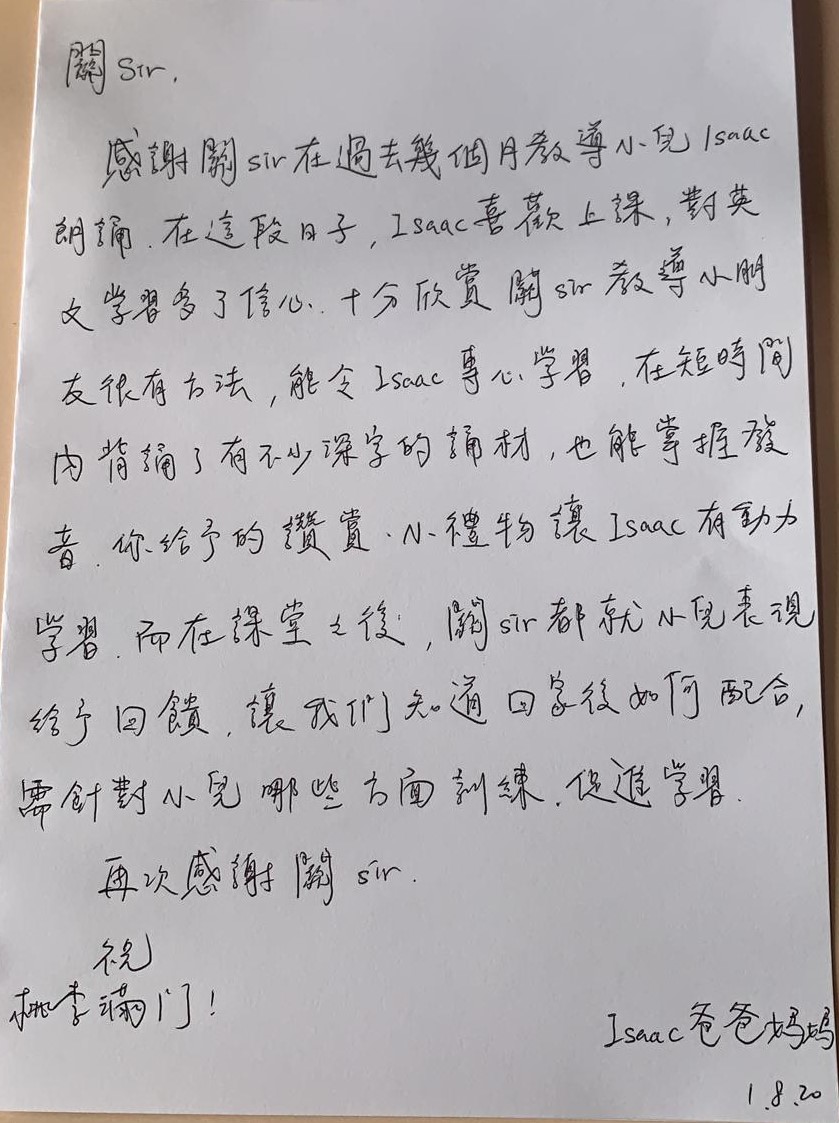 關 Sir,
感謝關sir在過去幾個月教導小兒Isaac
朗誦.在這段日子,Isaac喜歡上課,對英
文學習多了信心.十分欣賞關sir教導小朋
友很有方法,能令Isaac專心學習.在短時間
內背誦了有不少深字的誦材,也能掌握發
音.你給予的讚賞、小禮物讓Isaac有動力
學習.而在課堂之後,關sir都就小兒表現
給予回饋.讓我們知道回家後如何配合,
需針對小兒哪些方面訓練.促進學習.
再次感謝關sir.
祝
桃李滿門!
Isaac爸爸媽媽
1.8.20